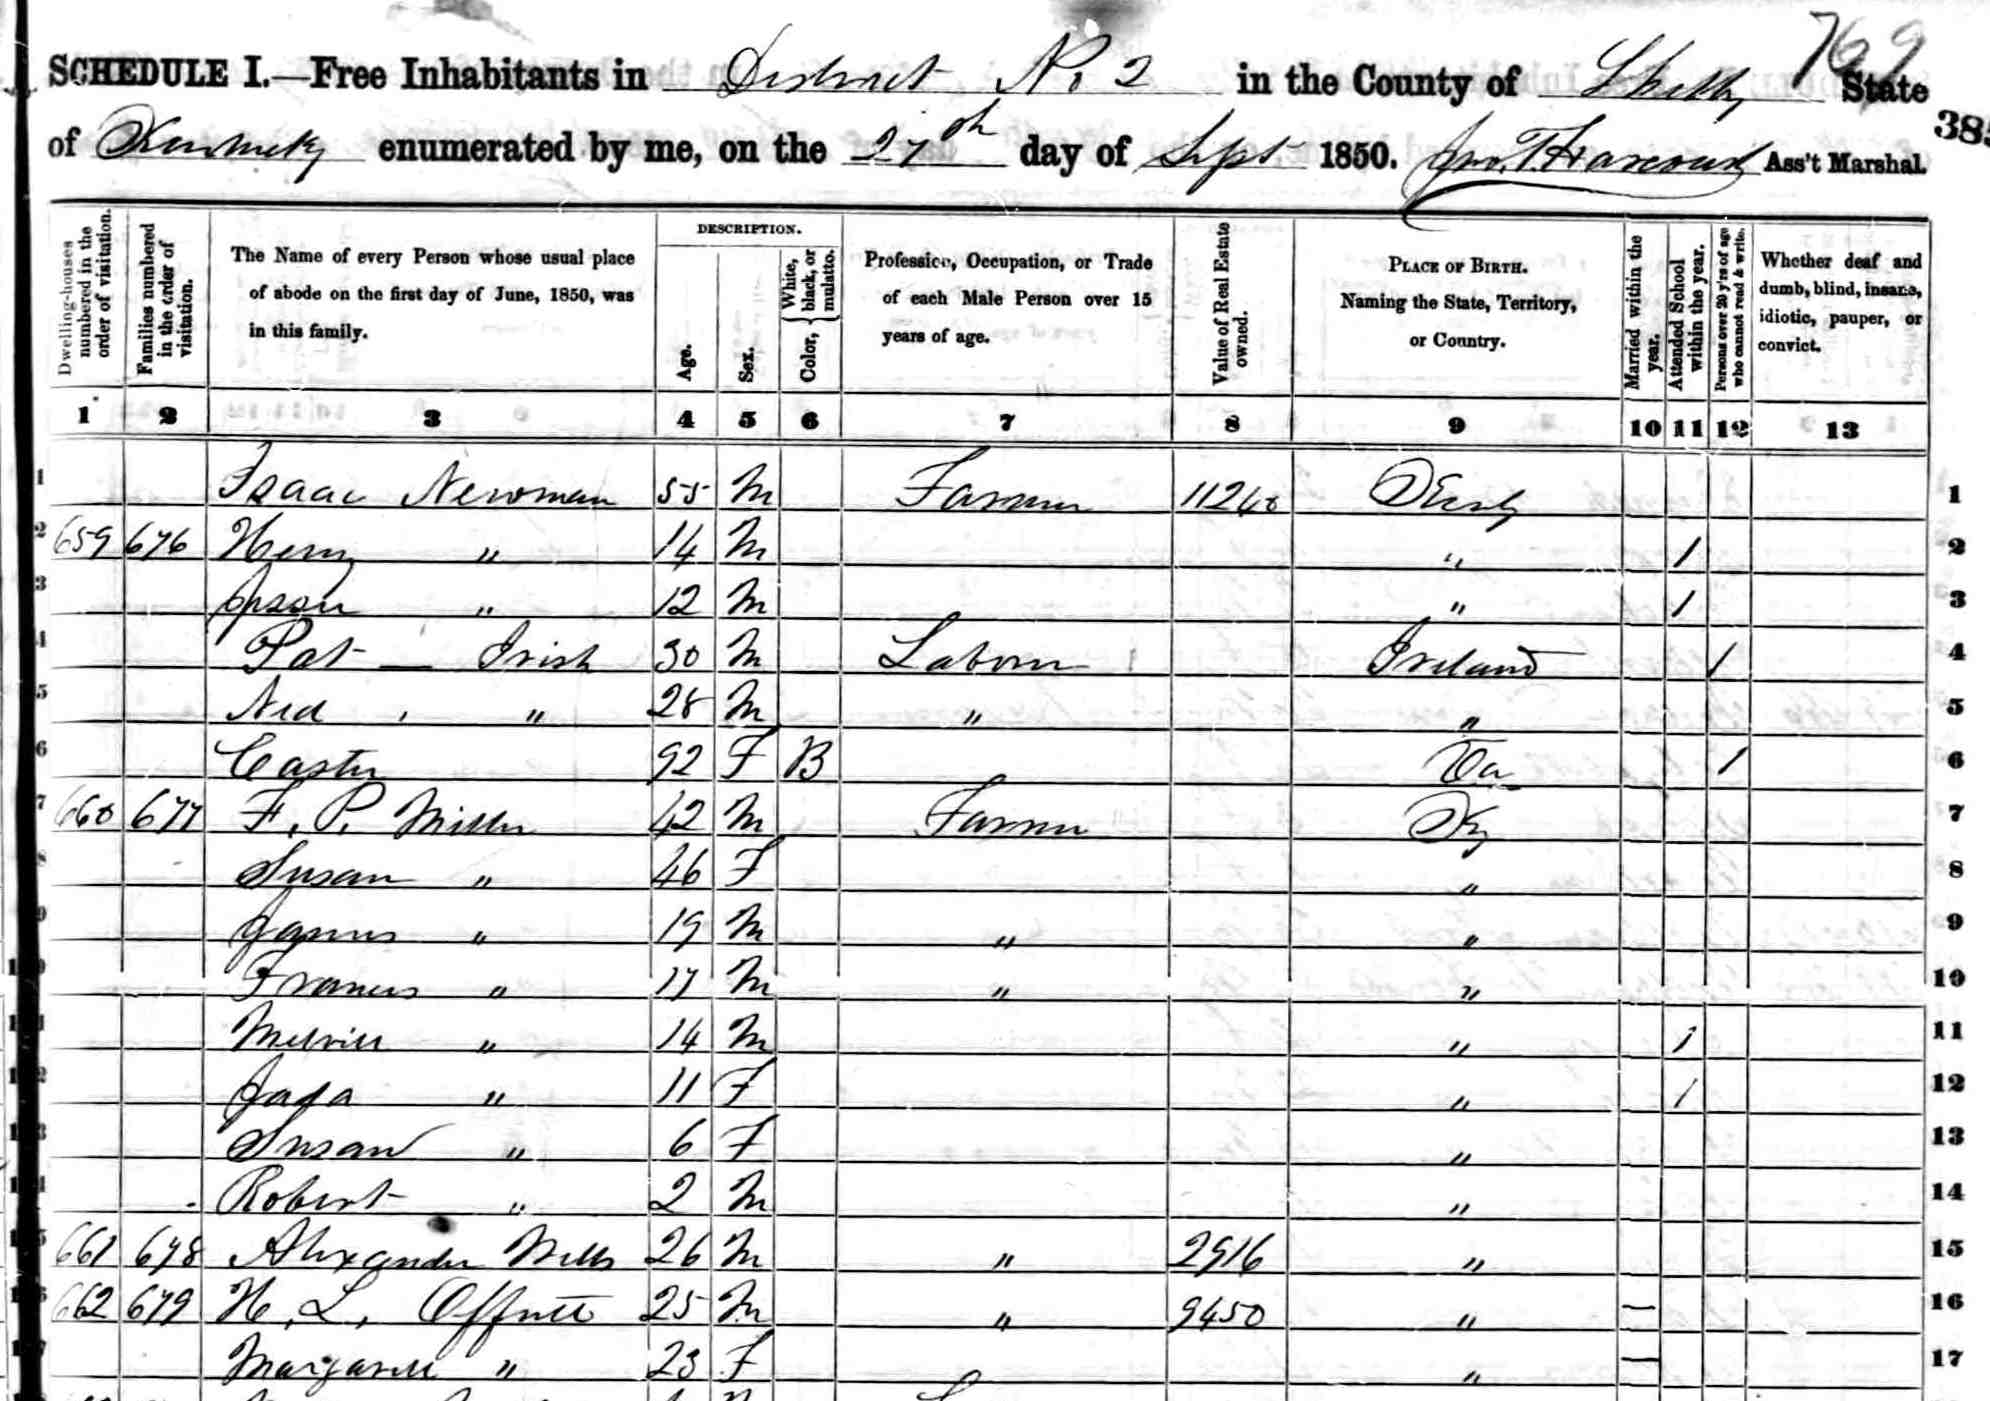 769
SCHEDULE I.—Free Inhabitants in District No 2 in the County of Shelby State
of Kentucky enumerated by me, on the 27th day of Sept 1850. Jno. T. Harcourt Ass't Marshal.
385
Dwelling-houses numbered in the order of visitation.
Families numbered in the order of visitation.
The Name of every Person whose usual place of abode on the first day of June, 1850, was in this family.
DESCRIPTION.
Age.
Sex.
Color, { White, black, or mulatto.
Profession, Occupation, or Trade of each Male Person over 15 years of age.
Value of Real Estate owned.
PLACE OF BIRTH. Naming the State, Territory, or Country.
Married within the year.
Attended School within the year.
Persons over 20 y'rs of age who cannot read & write.
Whether deaf and dumb, blind, insane, idiotic, pauper, or convict.
1 2 3 4 5 6 7 8 9 10 11 12 13
1 Isaac Newman 55 M Farmer 11240 1
2 659 676 Henry " 14 M " / 2
3 " 12 M " / 3
4 Pat — Irish 30 M Laborer Ireland / 4
5 Ned " 28 M " " 5
6 Easter 92 F B Va / 6
7 660 677 F. P. Miller 42 M Farmer Ky 7
8 Susan " 46 F " 8
9 James " 19 M " " 9
10 Francis " 17 M " " 10
11 Melvill " 14 M " / 11
12 " 11 F " / 12
13 Susan " 6 F " 13
14 Robert " 2 M " 14
15 661 678 Alexander Wells 26 M " 2916 " 15
16 662 679 H. L. Offutt 25 M " 9450 " — 16
17 Margarett " 23 F " — 17